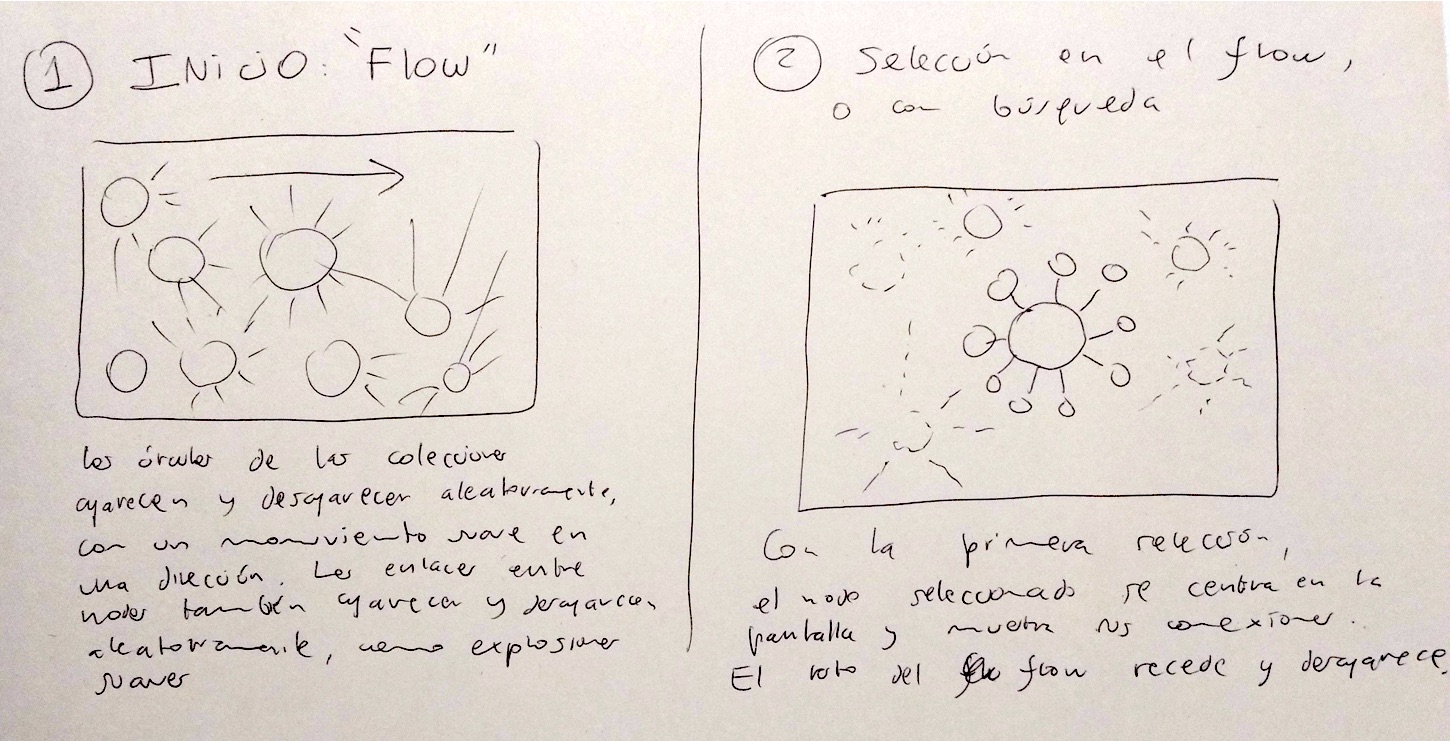 1 INICIO: "Flow"
Los círculos de las colecciones
aparecen y desaparecen aleatoriamente,
con un movimiento suave en
una dirección. Los enlaces entre
nodos también aparecen y desaparecen
aleatoriamente, como explosiones
suaves
2 Selección en el flow,
o con búsqueda
Con la primera selección,
el nodo seleccionado se centra en la
pantalla y muestra sus conexiones.
El resto del flow recede y desaparece.